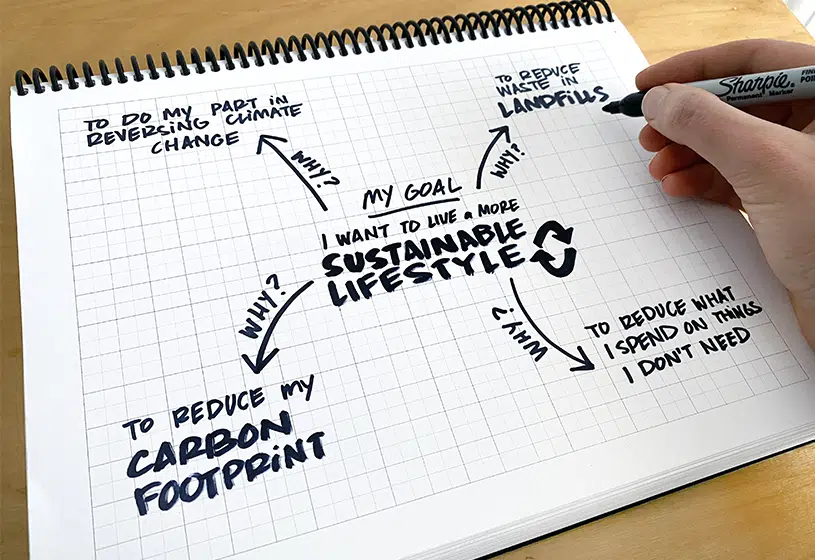 TO DO MY PART IN
REVERSING CLIMATE
CHANGE
WHY?
TO REDUCE
WASTE IN
LANDFILLS
WHY?
Sharpie
Permanent Marker
FINE
POINT
MY GOAL
I WANT TO LIVE a MORE
SUSTAINABLE
LIFESTYLE
WHY?
TO REDUCE MY
CARBON
FOOTPRINT
WHY?
TO REDUCE WHAT
I SPEND ON THINGS
I DON'T NEED